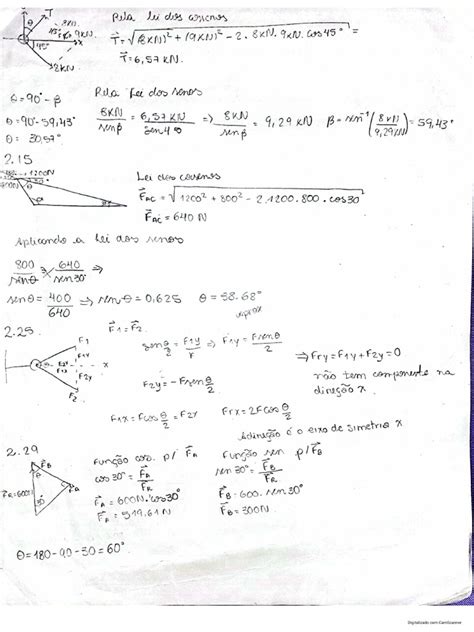 T
Pela lei dos cossenos
T⃗=√(8KN)² + (9KN)² - 2. 8KN. 9KN. cos 45° =
T⃗=6,57KN.
9KN.
x
45°
8KN.
θ=90° - β
θ=90°-59,43°
θ= 30,57°
Pela Lei dos senos
8KN/senβ = 6,57KN/sen45° => 8KN/senβ = 9,29KN. β=sen⁻¹(8KN/9,29KN)=59,43°
2.15
1200N
θ
Lei dos cossenos
F⃗AC=√1200² + 800² - 2.1200.800.cos30
F⃗AC=640N
Aplicando a lei dos senos
800/senθ = 640/sen30° =>
senθ = 400/640 => senθ=0,625 θ=38.68°
aprox
2.25
F⃗1=F⃗2
F1
F1y
F1x
F2x
F2y
F2
x
sen θ/2 = F1y/F => F1y = Fsenθ/2
F2y= -Fsenθ/2
=> Fry=F1y+F2y=0
não tem componente na
direção x
F1x=Fcosθ/2=F2x Frx=2Fcosθ/2
A direção é o eixo de simetria x
2.29
FB
FR=600N
FA
30
função cos. p/ F⃗A
cos30°= F⃗A/F⃗R
F⃗A=600N.cos30°
F⃗A=519,61N
Função sen p/F⃗B
sen30°= F⃗B/F⃗R
F⃗B=600.sen30°
F⃗B=300N.
θ=180-90-30=60°
Digitalizado com CamScanner